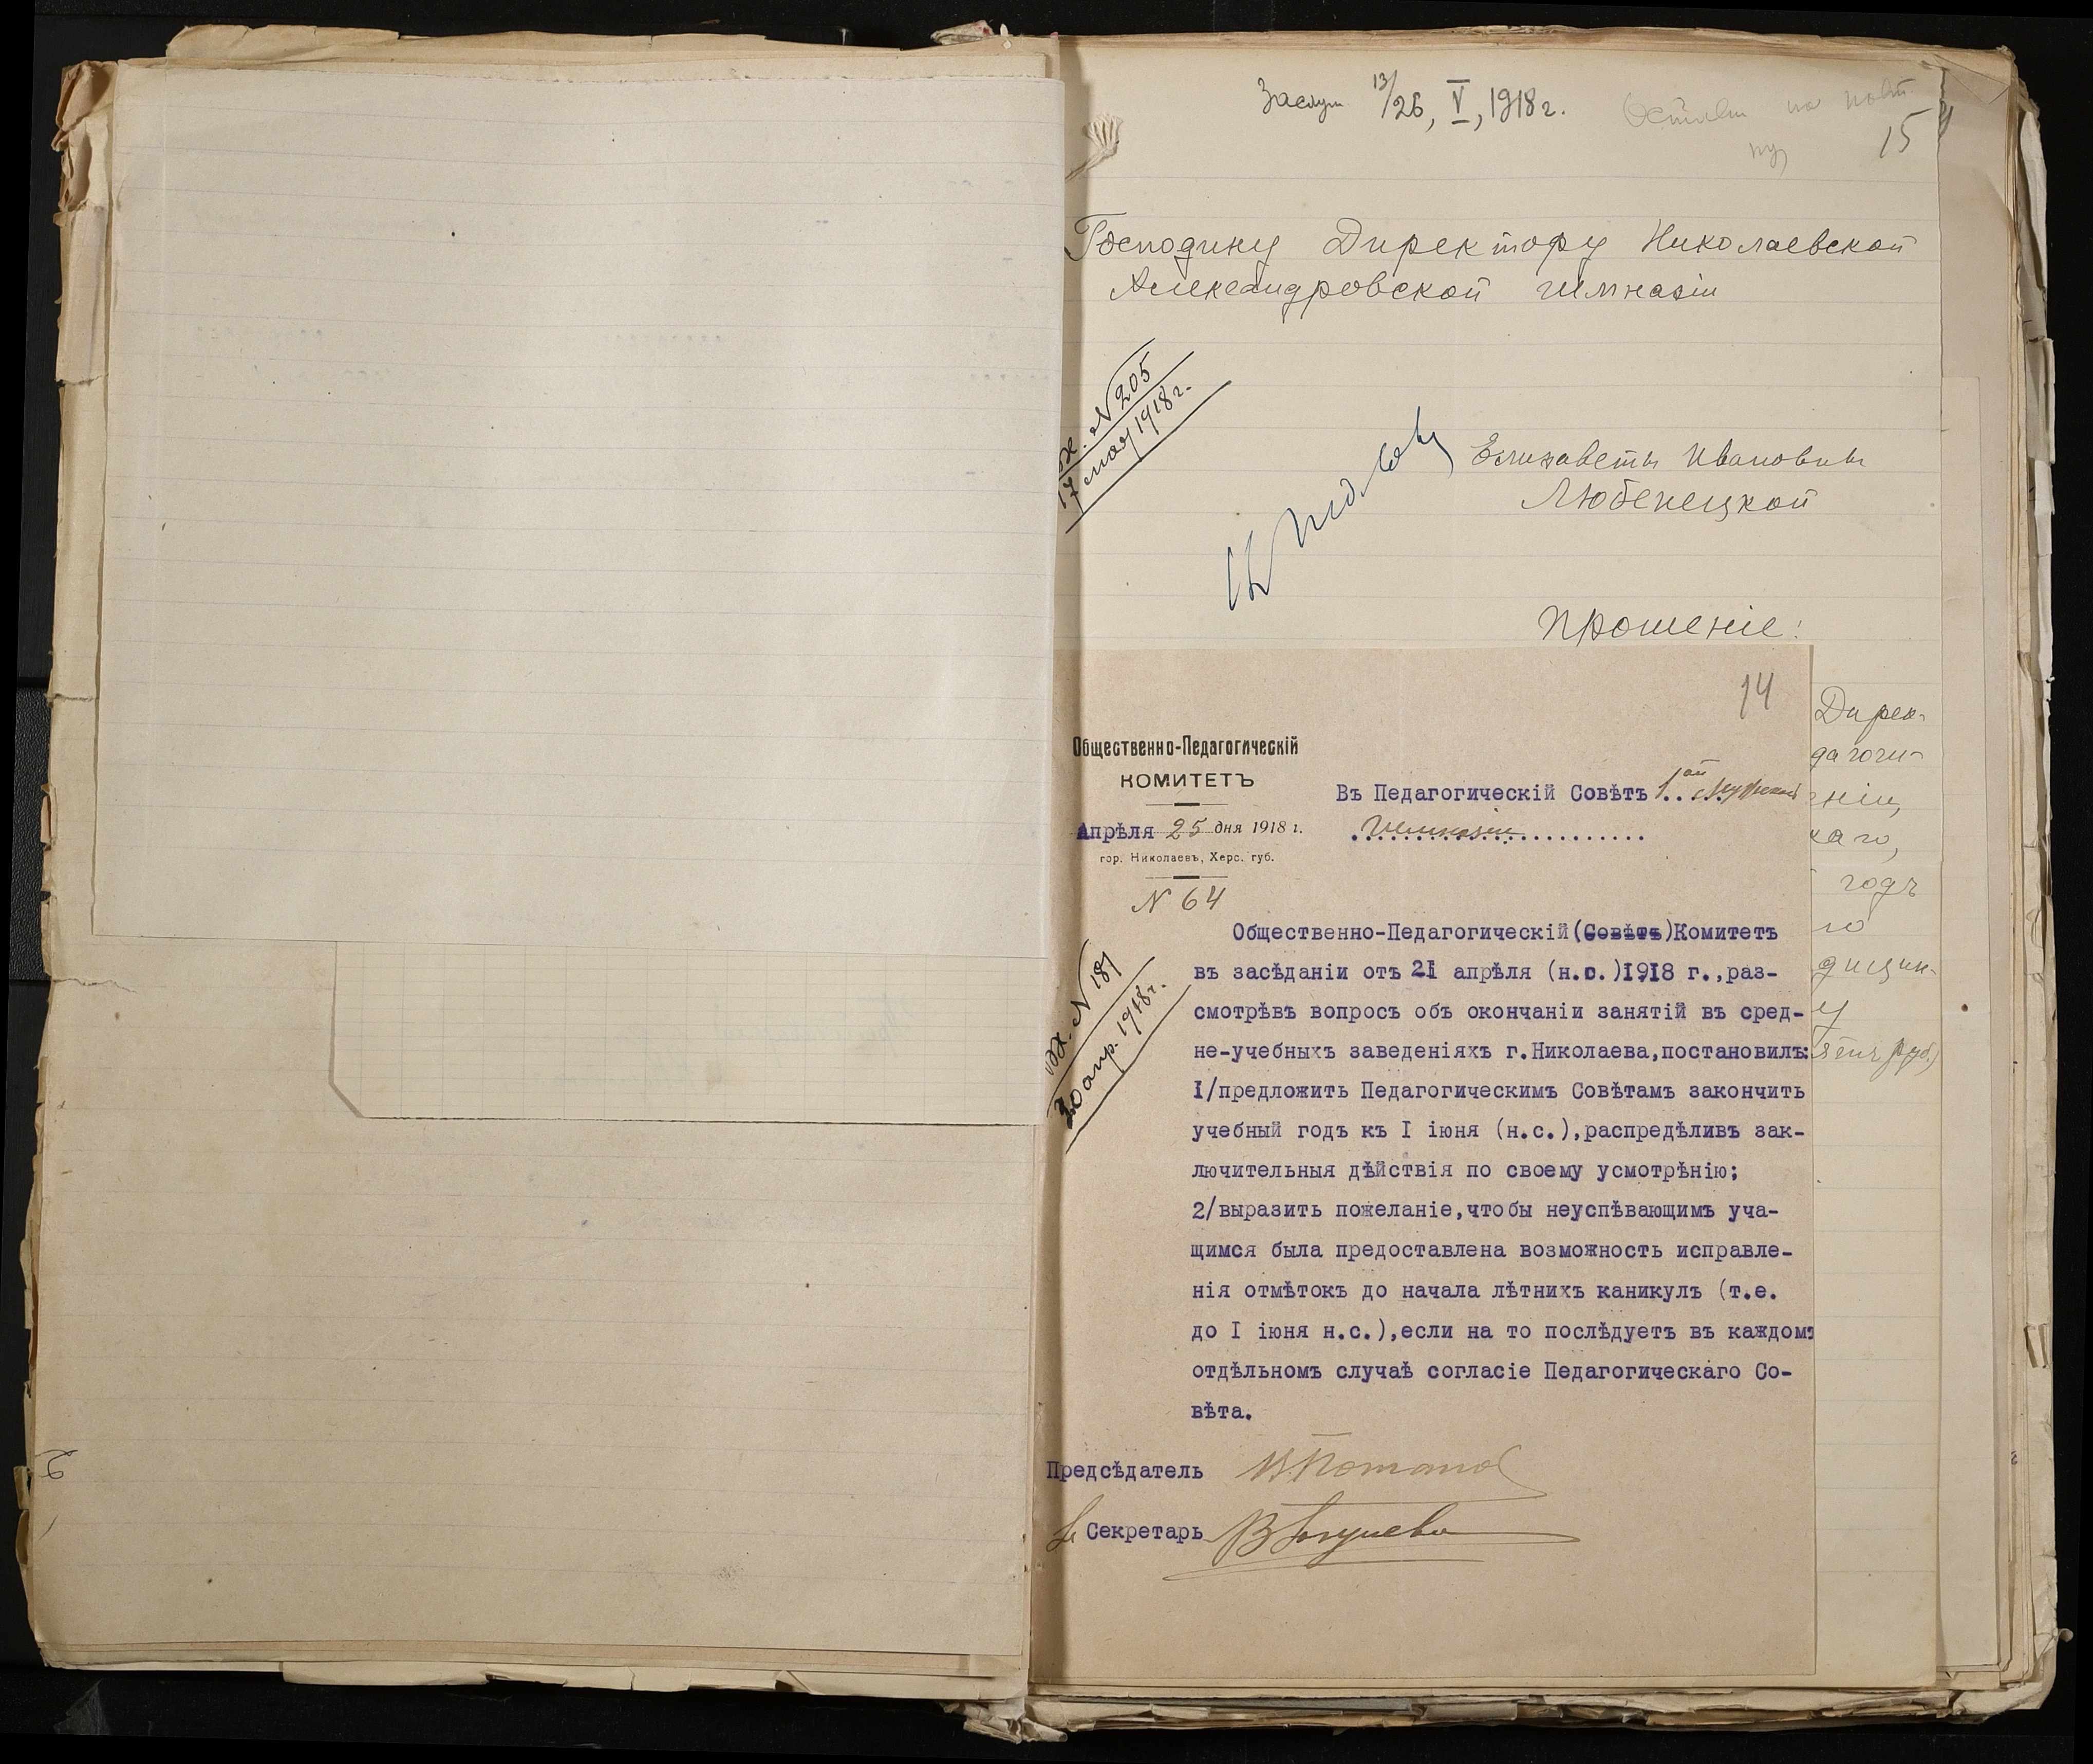 Заслуш 13/26, V, 1918 г.
15
Господину Директору Николаевской
Александровской гимназіи
Вх. N 205
17 мая 1918 г.
Елизаветы Ивановны
Любенецкой
Прошеніе:
14
Дирек-
дагоги-
ніи,
каго,
годъ
го
дицин-
у
руб.)
Общественно-Педагогическій
КОМИТЕТЪ
Апрѣля 25 дня 1918 г.
гор. Николаевъ, Херс. губ.
N 64
Въ Педагогическій Совѣтъ 1ой Мужской
Гимназіи
Вх. N 181
30 апр. 1918 г.
Общественно-Педагогическій (Совѣтъ) Комитетъ
въ засѣданіи отъ 21 апрѣля (н.с.) 1918 г., раз-
смотрѣвъ вопросъ объ окончаніи занятій въ сред-
не-учебныхъ заведеніяхъ г. Николаева, постановилъ:
1/ предложить Педагогическимъ Совѣтамъ закончить
учебный годъ къ I іюня (н.с.), распредѣливъ зак-
лючительныя дѣйствія по своему усмотрѣнію;
2/ выразить пожеланіе, чтобы неуспѣвающимъ уча-
щимся была предоставлена возможность исправле-
нія отмѣтокъ до начала лѣтнихъ каникулъ (т.е.
до I іюня н.с.), если на то послѣдуетъ въ каждомъ
отдѣльномъ случаѣ согласіе Педагогическаго Со-
вѣта.
Предсѣдатель
Секретарь